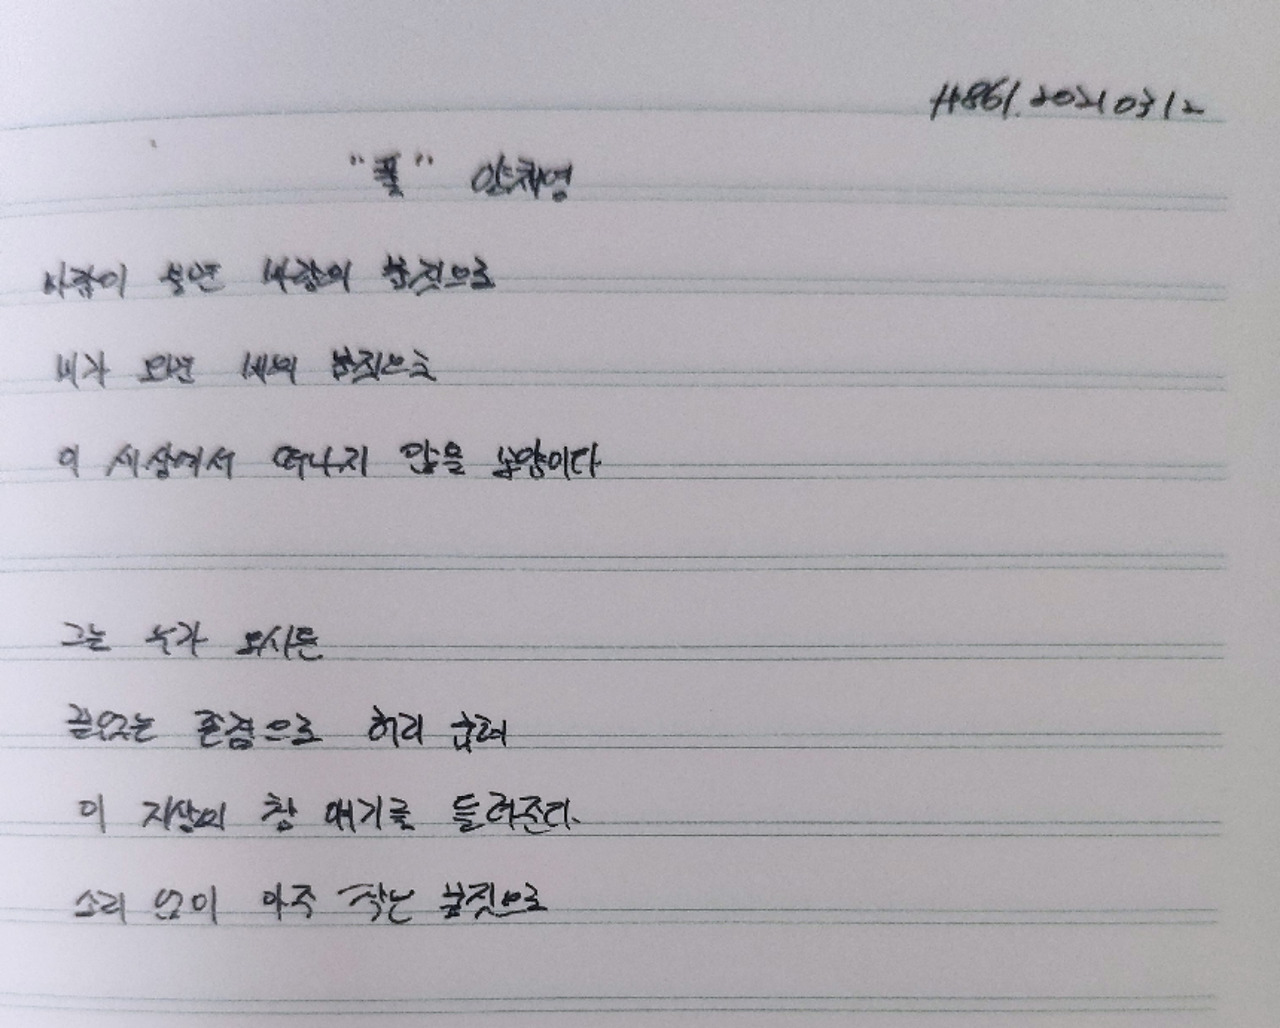 #861. 20210312
"풀" 양채영
바람이 불면 바람의 붓짓으로
비가 오면 비의 붓짓으로
이 세상에서 떠나지 않을 모양이다
그는 누가 오시든
끝없는 존경으로 허리 굽혀
이 지상의 참 얘기를 들려준다.
소리 없이 아주 작은 붓짓으로